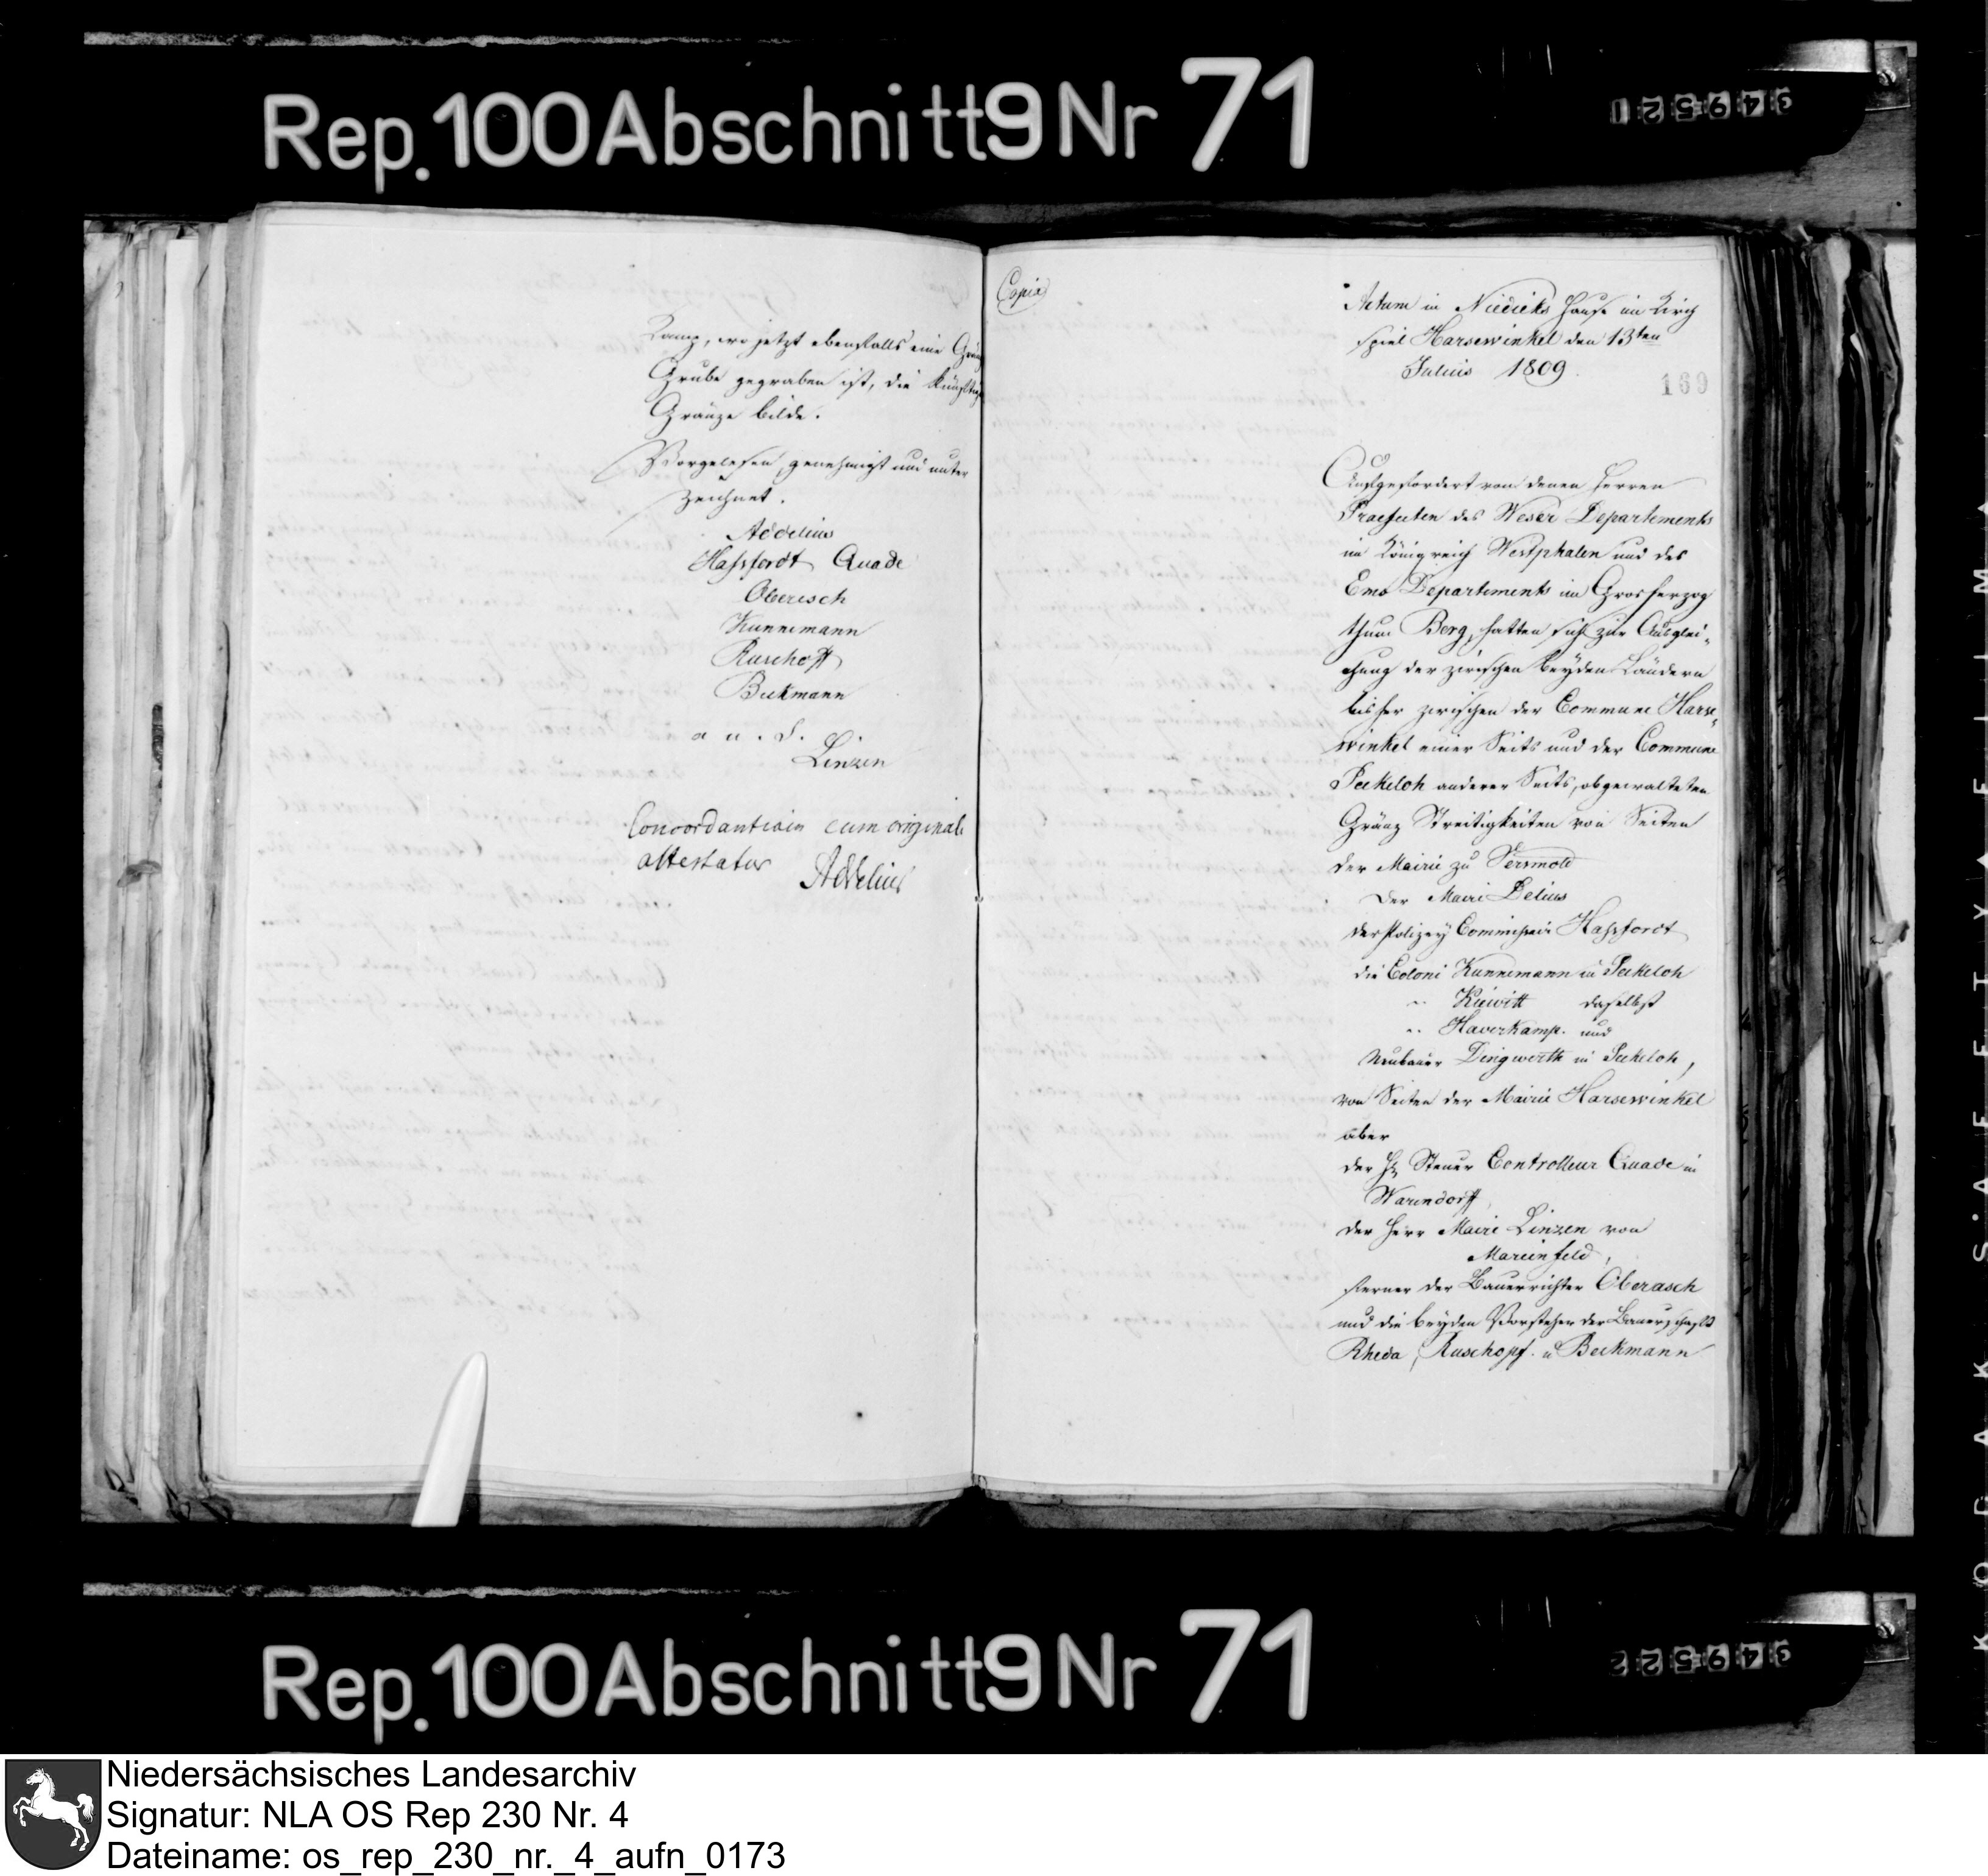 Rep. 100 Abschnitt 9 Nr 71
349521
Kamp, wo jetzt ebenfalls eine Gränz
Grube gegraben ist, die künftige
Gränze bilde.
Vorgelesen, genehmigt und unter
zeichnet.
Addelius
Hassfordt Quade
Oberesch
Kunnemann
Ruschoff
Beekmann
a u. s.
Linzen
Concordantiam cum originali
attestatur Addelius
Copia
Actum in Niedieks Hause im Kirch
spiel Harsewinkel den 13ten
Julius 1809.
169
Aufgefordert von denen Herren
Praefecten des Weser Departements
im Königreich Westphalen und des
Ems Departements im Grosherzog
thum Berg, hatten sich zur Ausglei-
chung der zwischen beyden Ländern
bisher zwischen der Commune Harse-
winkel einer Seits und der Commune
Peckeloh anderer Seits, obgewalteten
Gränz Streitigkeiten von Seiten
der Mairie zu Versmold
der Maire Delius
der Polizey Commissair Hassfordt
die Coloni Kunnemann in Peckeloh
" Kiewitt daselbst
" Haverkamp. und
Neubauer Dingwerth in Peckeloh,
von Seiten der Mairie Harsewinkel
aber
der H. Steuer Controlleur Quade in
Warendorff,
der Herr Maire Linzen von
Marienfeld,
ferner der Bauerrichter Oberasch
und die beyden Vorsteher der Bauerschaft
Rheda, Ruschopf. u Beekmann
Rep. 100 Abschnitt 9 Nr 71
349522
KODAK SAFETY FILM
Niedersächsisches Landesarchiv
Signatur: NLA OS Rep 230 Nr. 4
Dateiname: os_rep_230_nr._4_aufn_0173